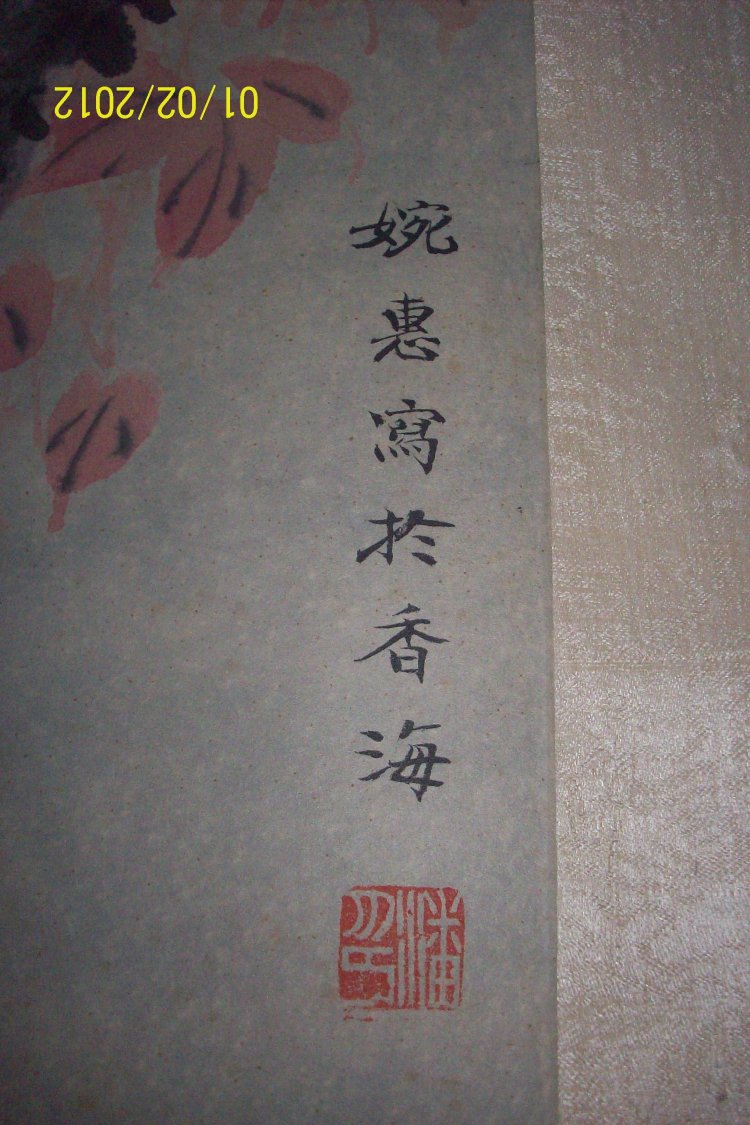 01/02/2012
婉惠寫於香海